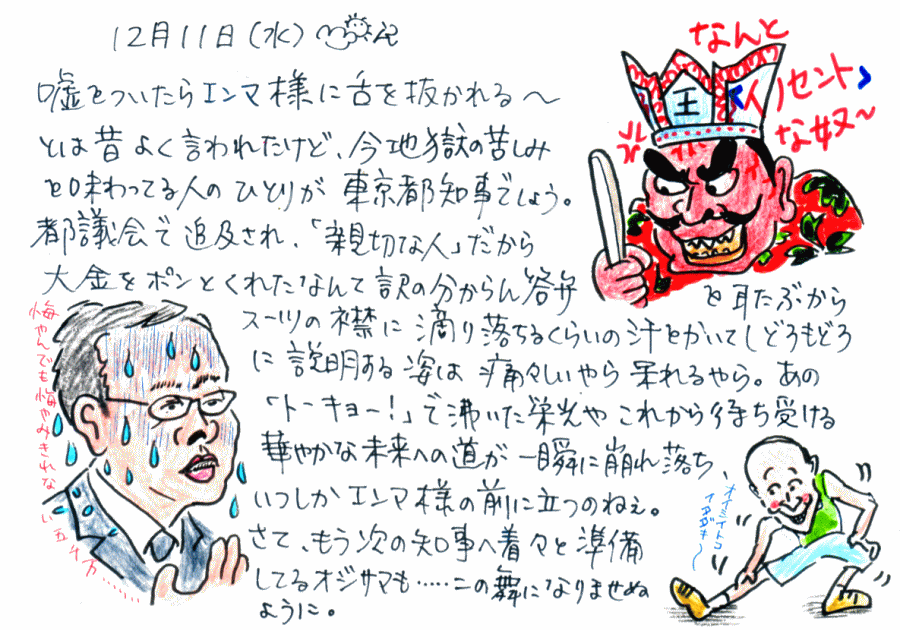 12月11日(水)
嘘をついたらエンマ様に舌を抜かれる〜
とは昔よく言われたけど、今地獄の苦しみ
を味わってる人のひとりが東京都知事でしょう。
都議会で追及され、「親切な人」だから
大金をポンとくれたなんて訳の分からん答弁
を耳たぶから
スーツの襟に滴り落ちるくらいの汗をかいてしどろもどろ
に説明する姿は痛々しいやら呆れるやら。あの
「トーキョー!」で沸いた栄光やこれから待ち受ける
華やかな未来への道が一瞬に崩れ落ち、
いつしかエンマ様の前に立つのねぇ。
さて、もう次の知事へ着々と準備
してるオジサマも……二の舞になりませぬ
ように。
なんと
〈イノセント〉
な奴〜
王
悔やんでも悔やみきれない五千万………
オイシイトコ
イタダキ〜